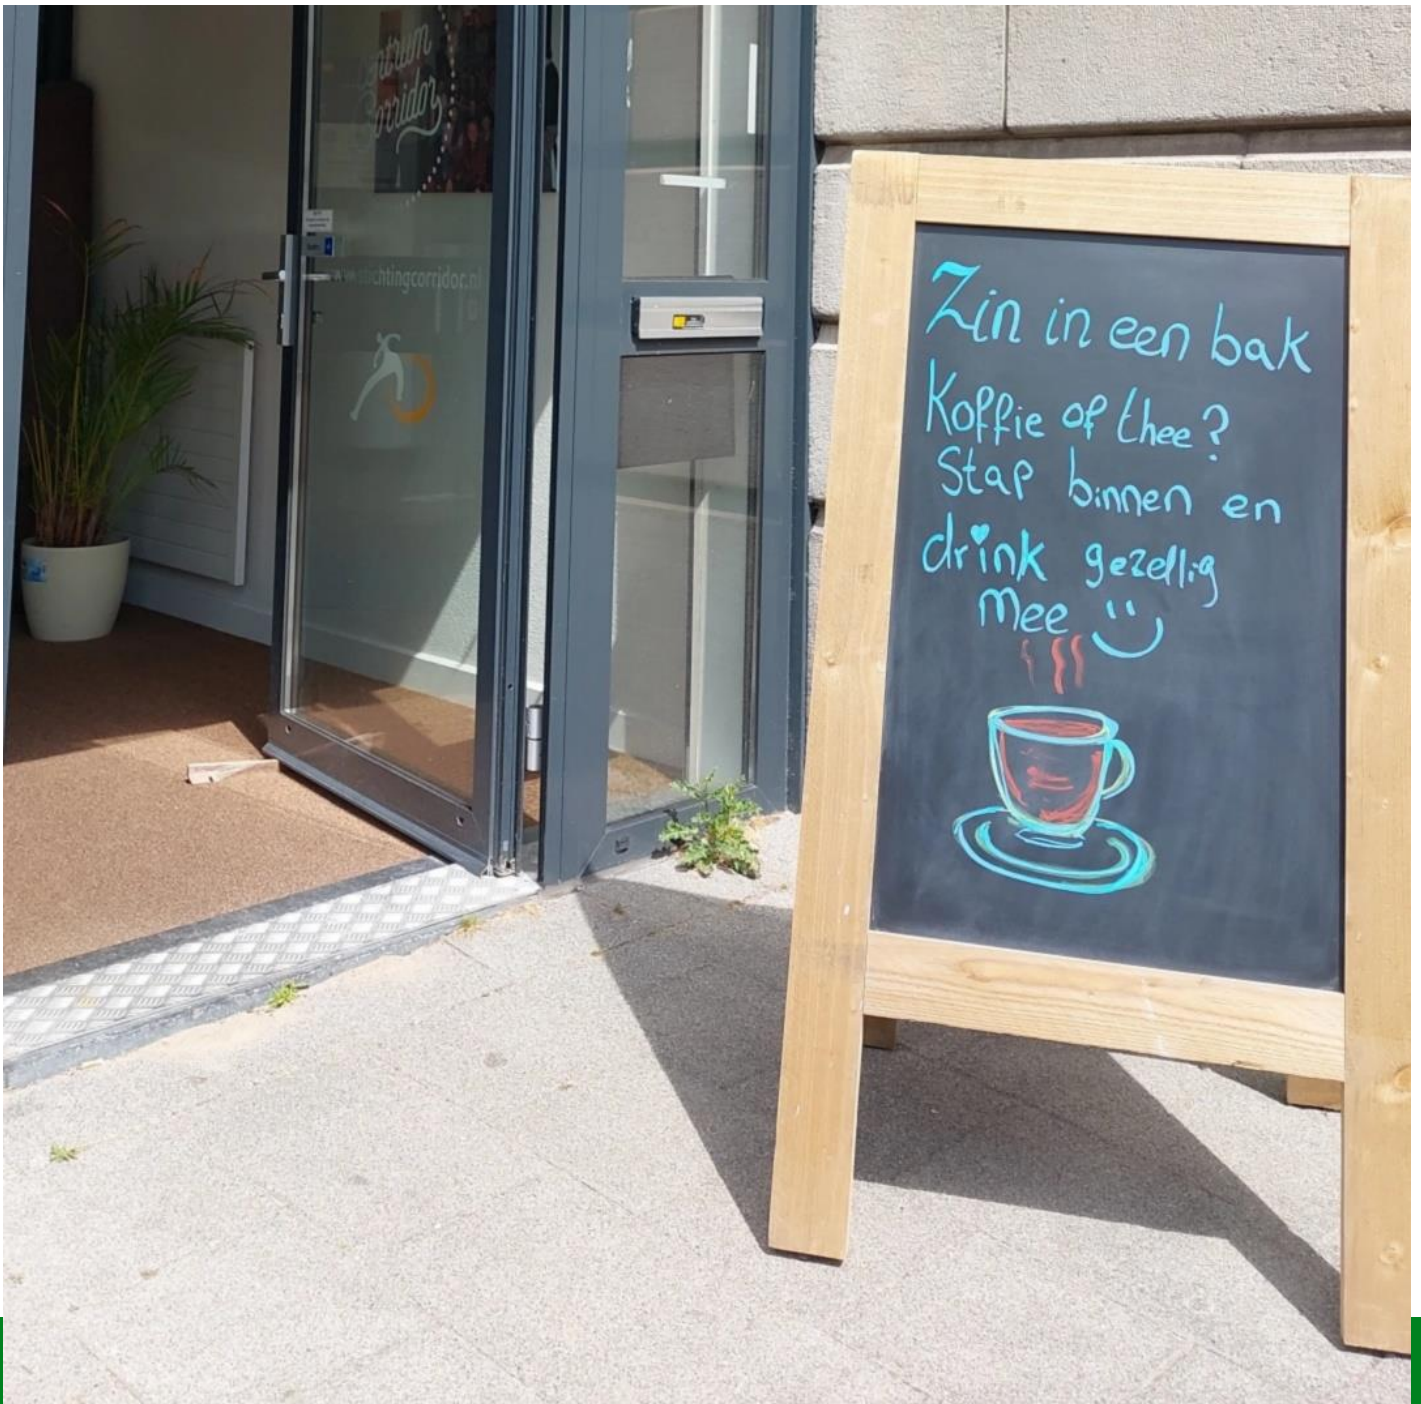 Corridor
www.stichtingcorridor.nl
Zin in een bak
Koffie of thee?
Stap binnen en
drink gezellig
mee